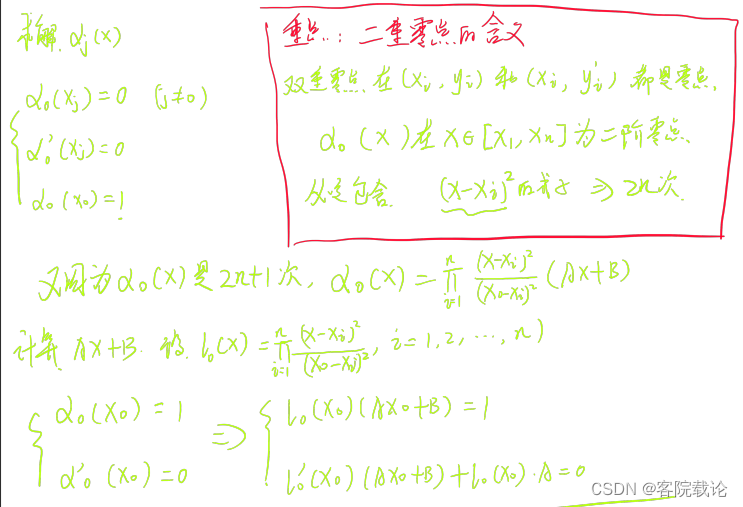 求解 αj(x)
α₀(xj)=0 (j≠0)
α₀'(xj)=0
α₀(x₀)=1
重点:二重零点的含义
双重零点在(xi, yi)和(xi, yi')都是零点.
α₀(x)在x∈[x₁, xn]为二阶零点.
必定包含 (x-xi)²的式子 ⇒ 2n次.
又因为α₀(x)是2n+1次, α₀(x)=∏ᵢ₌₁ⁿ (x-xi)²/(x₀-xi)² (Ax+B)
计算 Ax+B. l₀(x)=∏ᵢ₌₁ⁿ (x-xi)²/(x₀-xi)², i=1,2,…,n)
α₀(x₀)=1 ⇒ l₀(x₀)(Ax₀+B)=1
α'₀(x₀)=0 l₀'(x₀)(Ax₀+B)+l₀(x₀)·A=0
CSDN @客院载论